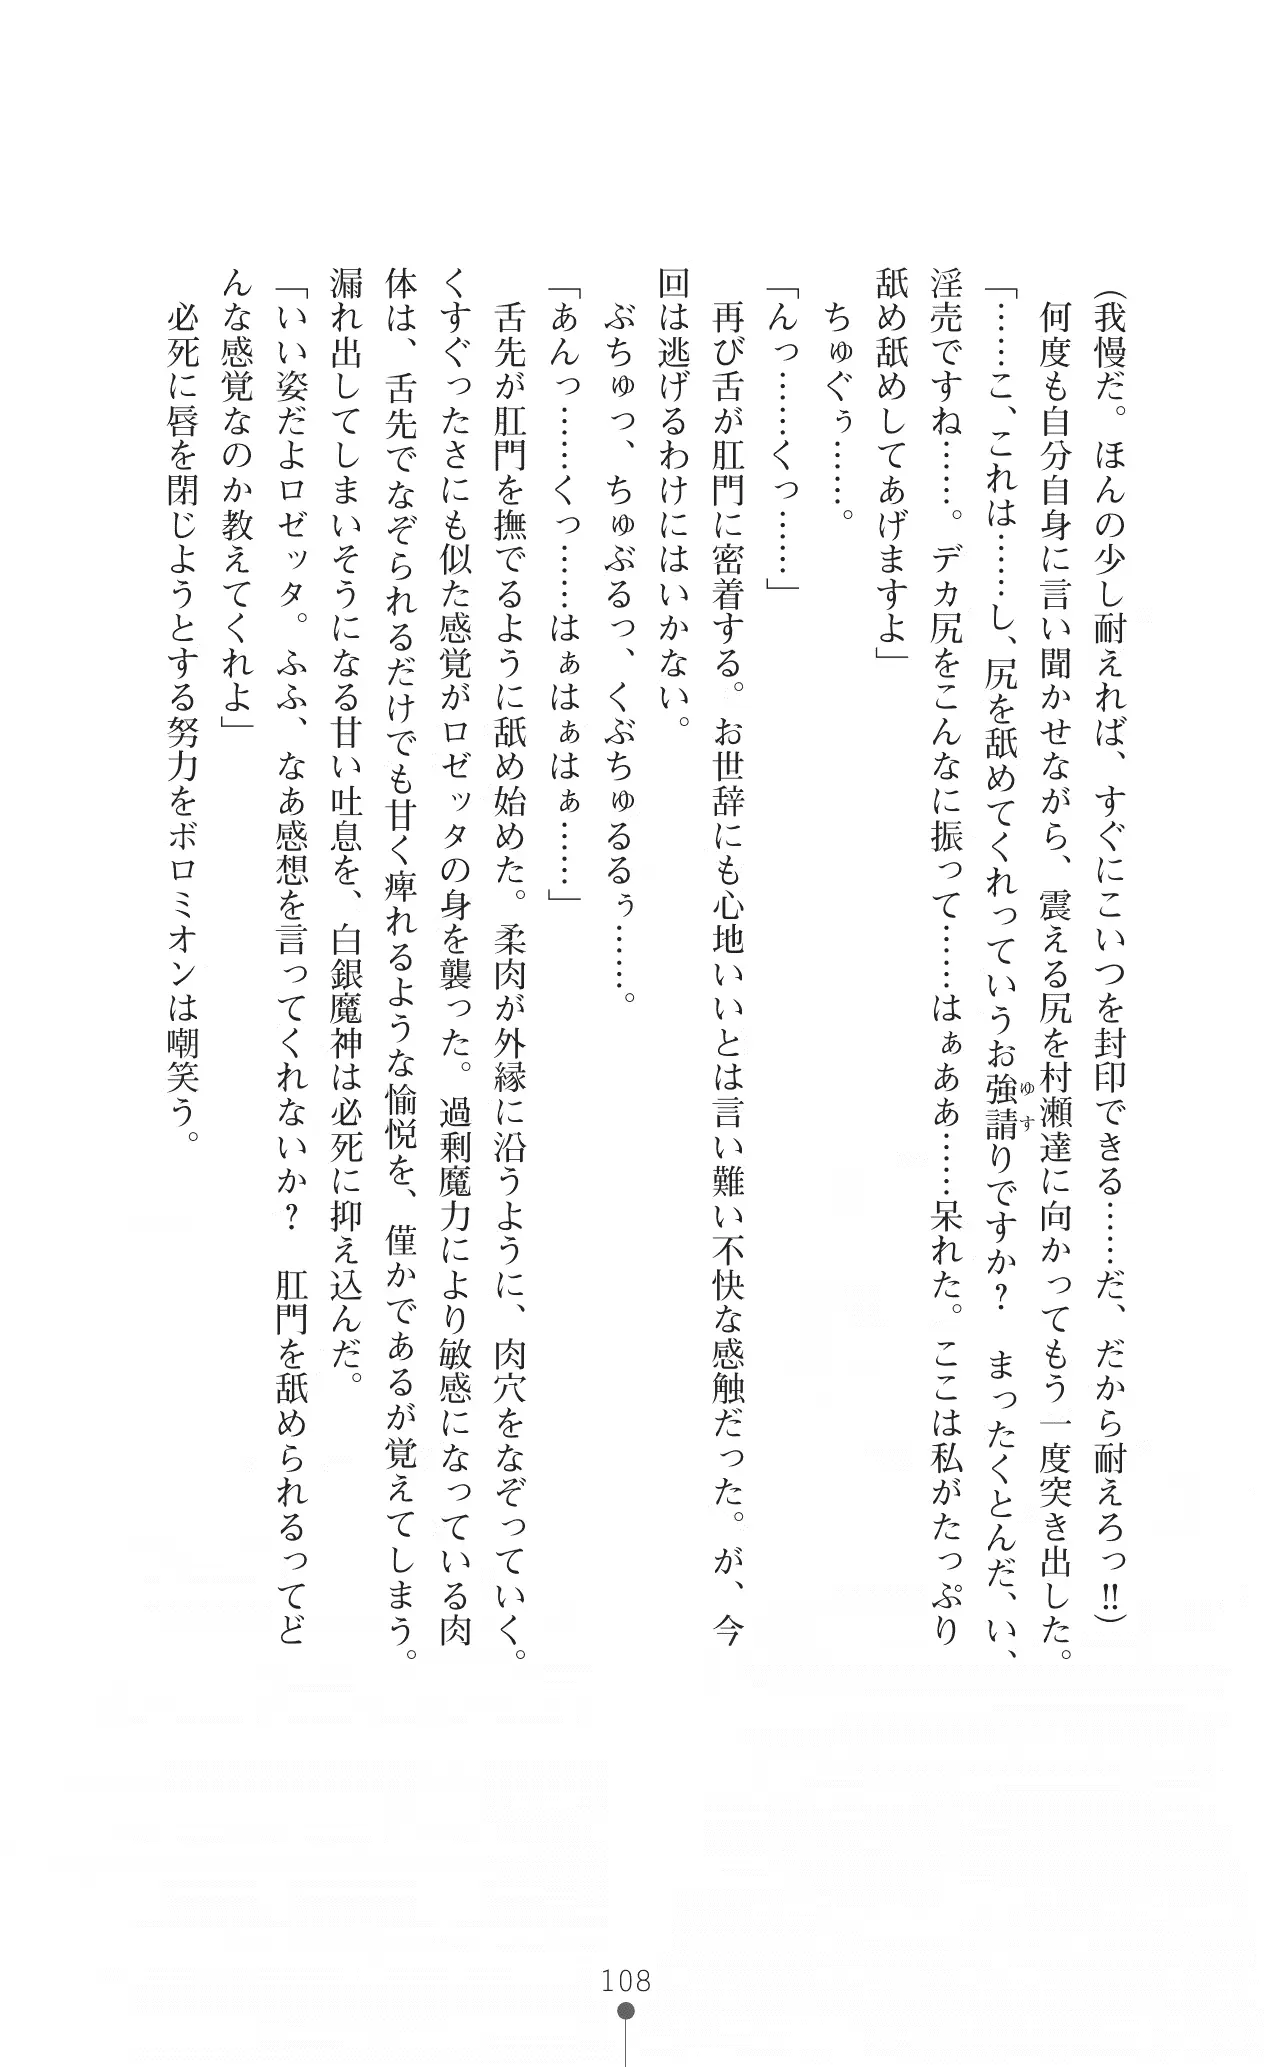 （我慢だ。ほんの少し耐えれば、すぐにこいつを封印できる……だ、だから耐えろっ!!）
何度も自分自身に言い聞かせながら、震える尻を村瀬達に向かってもう一度突き出した。
「……こ、これは……し、尻を舐めてくれっていうお強請りですか？　まったくとんだ、い、
ゆす
淫売ですね……。デカ尻をこんなに振って……はぁああ……呆れた。ここは私がたっぷり
舐め舐めしてあげますよ」
ちゅぐぅ……。
「んっ……くっ……」
再び舌が肛門に密着する。お世辞にも心地いいとは言い難い不快な感触だった。が、今
回は逃げるわけにはいかない。
ぶちゅっ、ちゅぶるっ、くぶちゅるるぅ……。
「あんっ……くっ……はぁはぁはぁ……」
舌先が肛門を撫でるように舐め始めた。柔肉が外縁に沿うように、肉穴をなぞっていく。
くすぐったさにも似た感覚がロゼッタの身を襲った。過剰魔力により敏感になっている肉
体は、舌先でなぞられるだけでも甘く痺れるような愉悦を、僅かであるが覚えてしまう。
漏れ出してしまいそうになる甘い吐息を、白銀魔神は必死に抑え込んだ。
「いい姿だよロゼッタ。ふふ、なあ感想を言ってくれないか？　肛門を舐められるってど
んな感覚なのか教えてくれよ」
必死に唇を閉じようとする努力をボロミオンは嘲笑う。
108